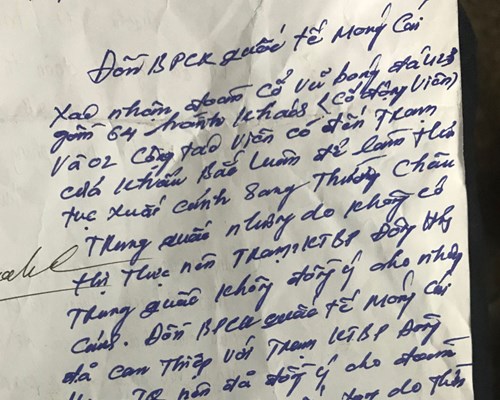 Đồn BPCK quốc tế Móng Cái
Xác nhận đoàn cổ vũ bóng đá U23
gồm 64 hành khách (cổ động viên)
và 02 cộng tác viên có đến Trạm
cửa khẩu Bắc Luân để làm thủ
tục xuất cảnh sang Thường Châu
Trung quốc nhưng do không có
thị thực nên Trạm KTBP Đông Hưng
Trung quốc không đồng ý cho nhập
cảnh. Đồn BPCK quốc tế Móng Cái
đã can thiệp với Trạm KTBP Đông
TQ nên đã đồng ý cho đoàn
do